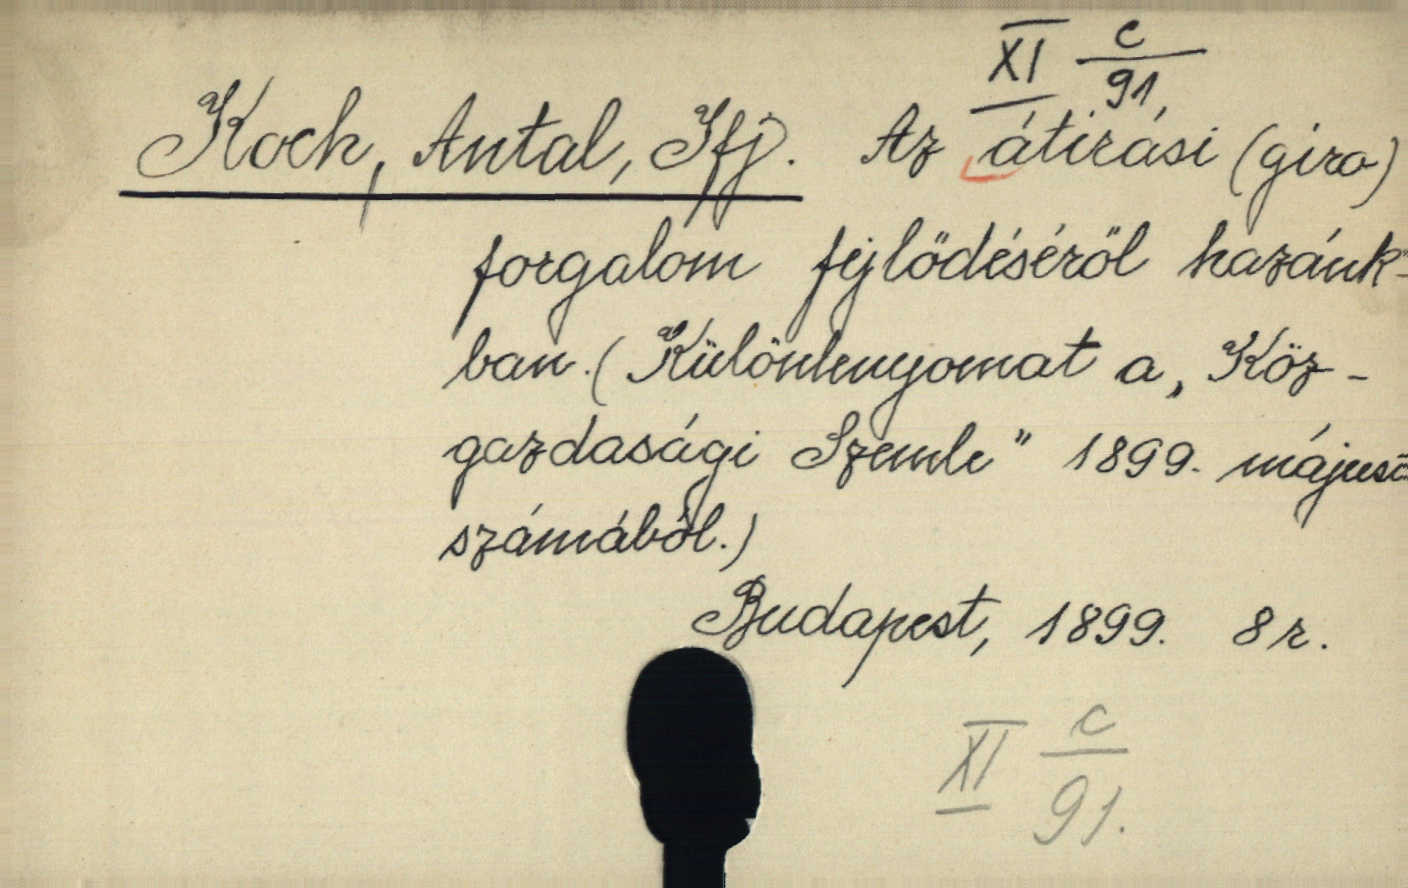 XI c/91,
Koch, Antal, Ifj. Az átirási (giro)
forgalom fejlődéséről hazánk-
ban. (Különlenyomat a „Köz-
gazdasági Szemle" 1899. májusi
számából.)
Budapest, 1899. 8 r.
XI c/91.